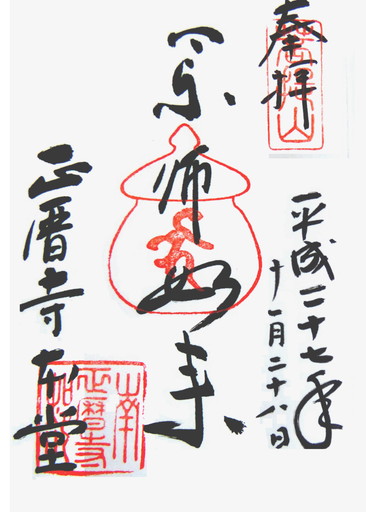 奉拝
平成二十七年
十一月二十八日
薬師如来
正暦寺本堂